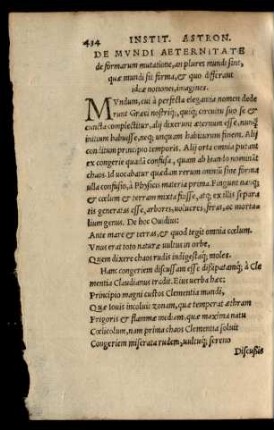 434 INSTIT. ASTRON.
DE MVNDI AETERNITATE
de formarum mutatione, an plures mundi sint,
quæ mundi sit forma, & quo differant
ideæ notiones, imagines.
MVndum, cui à perfecta elegantia nomen dede
runt Græci nostriq́;, quiq; circuitu suo se &
cuncta complectitur, alij dixerunt æternum esse, nunq́
initium habuisse, neq; unquam habiturum finem. Alij
continuū principio temporis. Alij orta omnia putant
ex congerie quadā confusa, quam ab hiando nominãt
chaos. Id uocabatur quædam rerum omniū sine forma
ulla confusio, à Physicis materia prima. Fingunt nanq;
& cœlum & terram mixta fuisse, atq; ex illis separa
tis generatas esse, arbores, uolucres, feras, ac morta
lium genus. De hoc Ouidius:
Ante mare & terras, & quod tegit omnia cœlum.
Vnus erat toto naturæ uultus in orbe,
Quem dixere chaos rudis indigestaq́; moles.
Hanc congeriem discussam esse dissipatamq́; à Cle
mentia Claudianus tradit. Eius uerba hæc:
Principio magni custos Clementia mundi,
Quæ Iouis incoluit zonam, quæ temperat æthram
Frigoris & flammæ mediam, quæ maxima natu
Cœlicolum, nam prima chaos Clementia soluit
Congeriem miserata rudem, uultuq́; sereno
Discussis